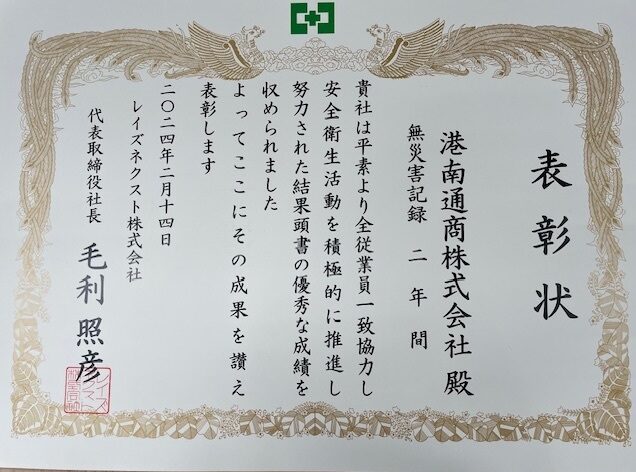 表彰状
港南通商株式会社 殿
無災害記録 二年間
貴社は平素より全従業員一致協力し
安全衛生活動を積極的に推進し
努力された結果頭書の優秀な成績を
収められました
よってここにその成果を讃え
表彰します
二〇二四年二月十四日
レイズネクスト株式会社
代表取締役社長 毛利照彦